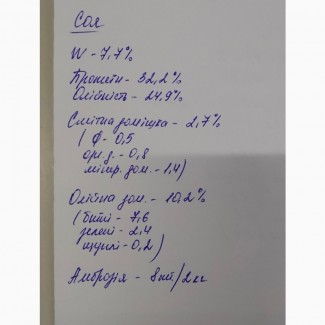 Соя
W - 7,7%
Протеїн - 32,2%
Олійність - 24,9%
Смітна домішка - 2,7%
( Ф - 0,5
орг. д. - 0,8
мінер. дом. - 1,4)
Олійна дом. - 10,2%
(биті - 7,6
зелені - 2,4
щуплі - 0,2)
Амброзія - 8шт/2кг